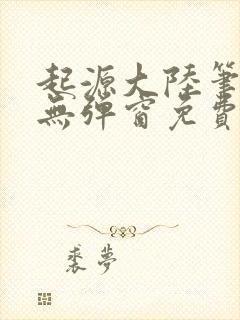 起源大陸筆
無彈窗免費
裘夢